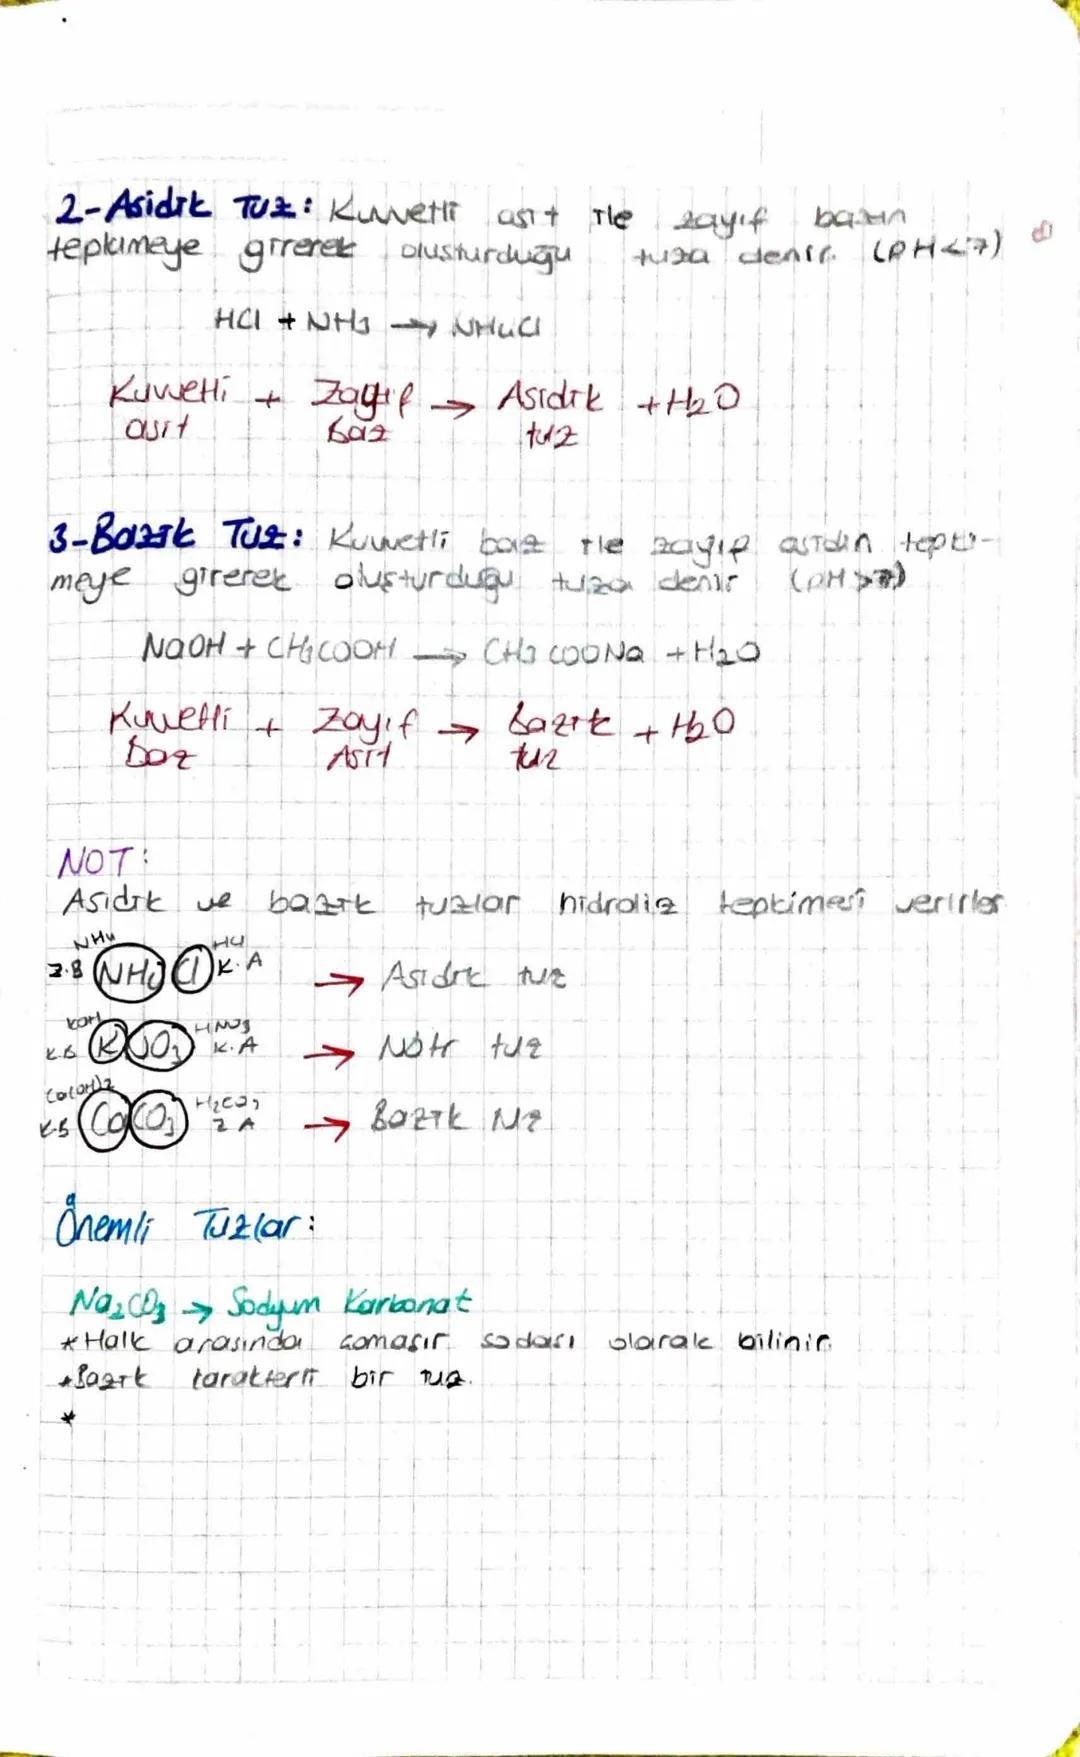 2-Asidik Tuz: Kuvvetli asit ile zayıf bazın
tepkimeye girerek oluşturduğu tuza denir. (pH<7)
HCl + NH3 → NH4Cl
Kuvvetli + Zayıf → Asidik + H2O
asit baz tuz
3-Bazik Tuz: Kuvvetli baz ile zayıf asidin tepki-
meye girerek oluşturduğu tuza denir (pH>7)
NaOH + CH3COOH → CH3COONa + H2O
Kuvvetli + Zayıf → Bazik + H2O
baz Asit tuz
NOT:
Asidik ve bazik tuzlar hidroliz tepkimesi verirler
NH4 HCl
Z.B NH4 Cl K.A → Asidik tuz
KOH HNO3
K.B K NO3 K.A → Nötr tuz
Ca(OH)2 H2CO3
K.B Ca CO3 Z A → Bazik tuz
Önemli Tuzlar:
Na2CO3 → Sodyum Karbonat
*Halk arasında çamaşır sodası olarak bilinir.
*Bazik karakterli bir tuz.
*